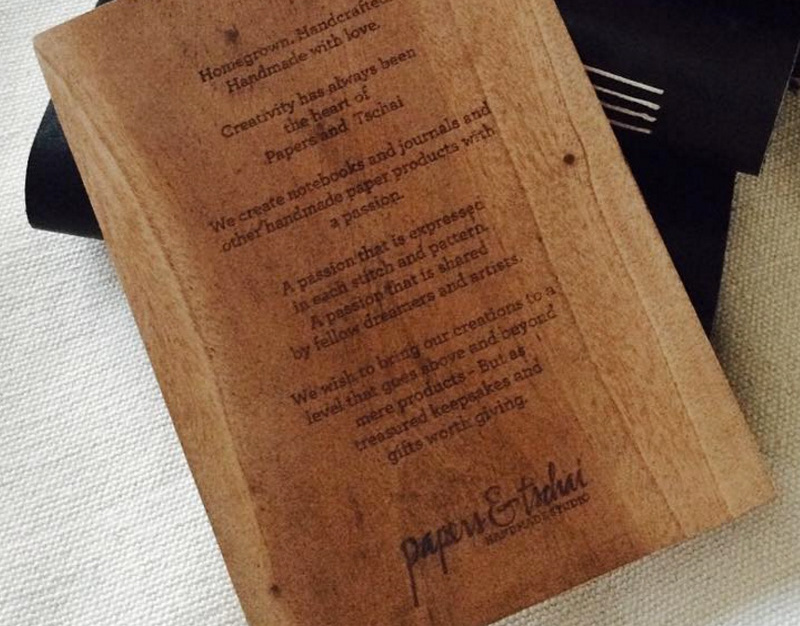 Homegrown. Handcrafted.
Handmade with love.
Creativity has always been
the heart of
Papers and Tschai
We create notebooks and journals and
other handmade paper products with
a passion.
A passion that is expressed
in each stitch and pattern.
A passion that is shared
by fellow dreamers and artists.
We wish to bring our creations to a
level that goes above and beyond
mere products - But as
treasured keepsakes and
gifts worth giving.
papers & tschai
HANDMADE STUDIO